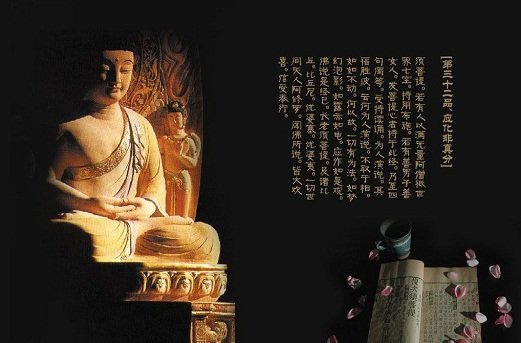 【第三十二品、应化非真分】
须菩提。若有人以满无量阿僧祇世
界七宝。持用布施。若有善男子善
女人。发菩提心者持于此经。乃至四
句偈等。受持读诵。为人演说。其
福胜彼。云何为人演说。不取于相。
如如不动。何以故。一切有为法。如梦
幻泡影。如露亦如电。应作如是观。
佛说是经已。长老须菩提。及诸比
丘。比丘尼。优婆塞。优婆夷。一切世
间天人阿修罗。闻佛所说。皆大欢
喜。信受奉行。